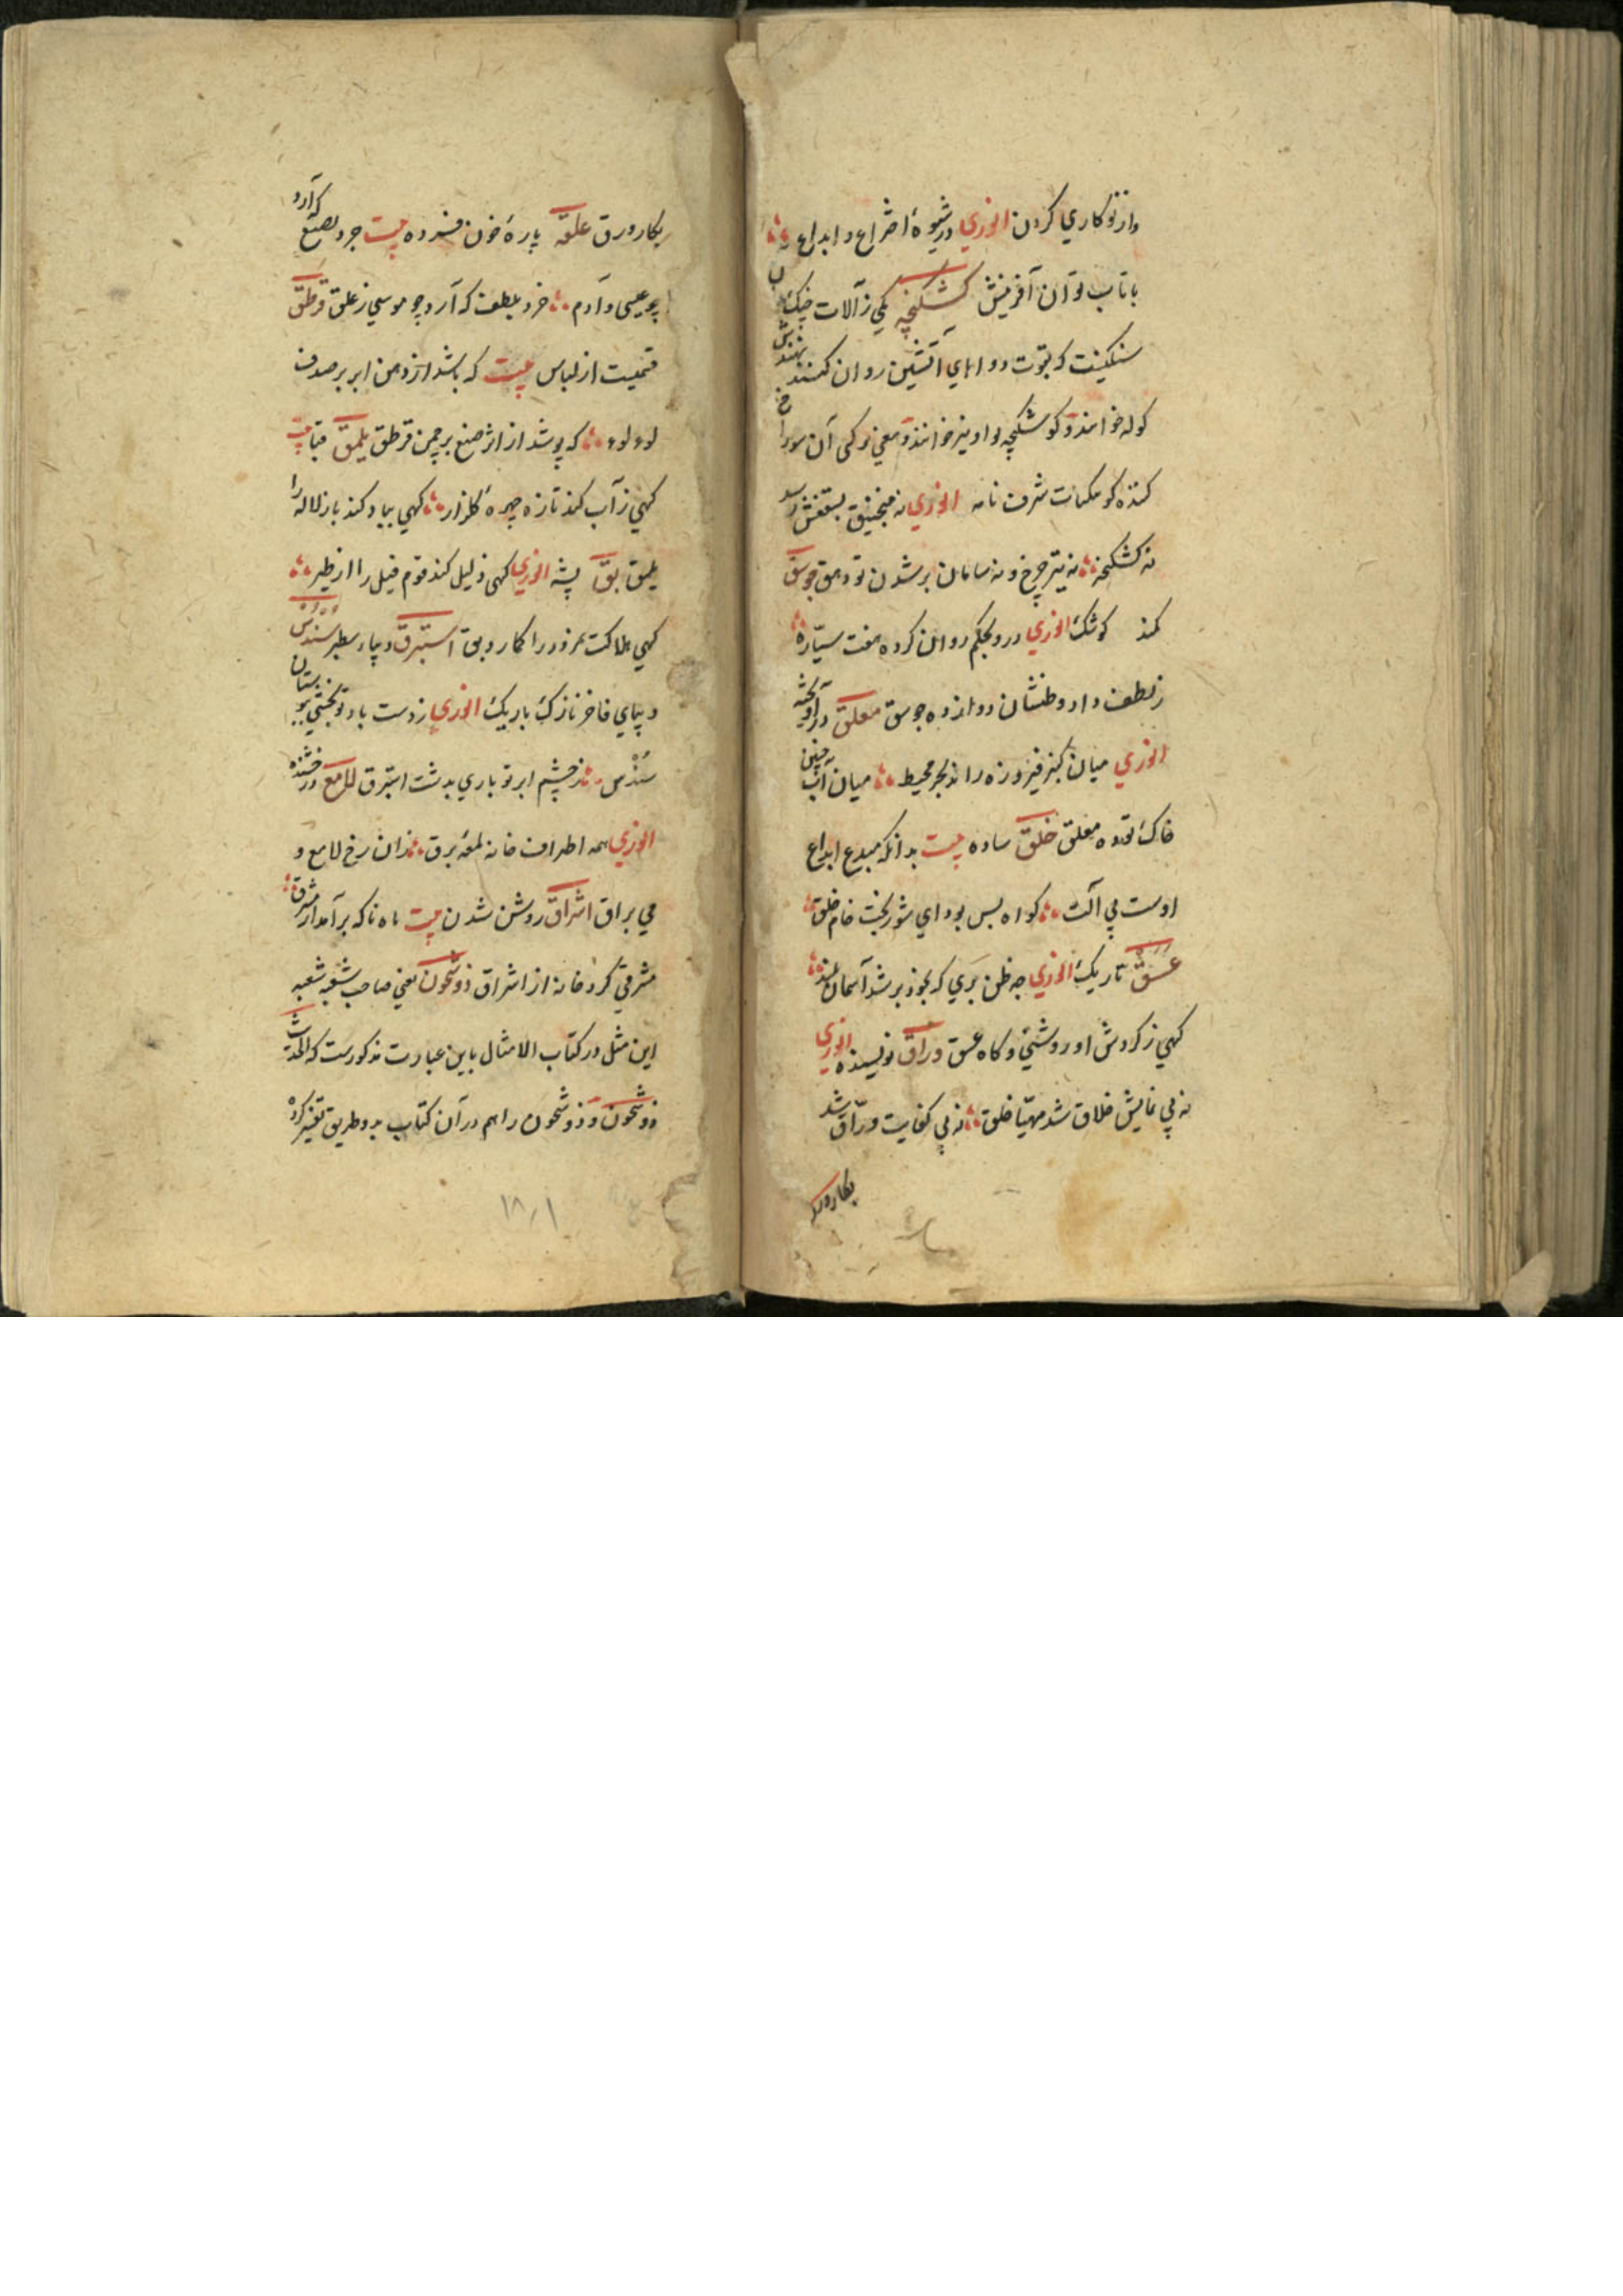 واز نوکاري کردن انوري در شیوهٔ اختراع و ابداع
با تاب توان آفرینش کشکنجه یکي ز آلات جنک
سنکینت که بقوت دواهاي آتشین روان کنند
کوله خوانند و کوشکنجه او را نیز خوانند و معني ترکی آن سور
کننده کوشک شرف نامه انوري نه منجنیق بسقفش رسد
نه کشکنجه نه تیر چرخ و نه سامان بر شدن بوهق جوسق
کمند کوشک انوري درو بحکم روان کرده هفت سیّاره
ز لطف داده وطنشان دوازده جوسق معلق در آویخته
انوري میان کنبد فیروزه رانده بحر محیط میان آب چنین
خاک توده معلق خلق ساده بیت بدانکه مبدع ابداع
اوست بي آلت کواه بس بود اي شوربخت خام خلق
غسق تاریک انوري چه ظن بري که بخود بر شد آسمان بلند
کهي ز کردش او روشني و کاه غسق ورّاق نویسنده انوري
نه بي نمایش خلاق شد مهیّا خلق نه بي کفایت ورّاق شد
بکار ورق
بکار ورق علقه پارهٔ خون فسرده بیت خرد بصنع که آرد
چو عیسی و آدم خرد بلطف که آرد چو موسي ز علق قرطق
قمیست از لباس بیت که باشد از دهن ابر بر صدف
لوءلوء که پوشد از اثر صنع بر چمن قرطق یلمق قبا بیت
کهي ز آب کند تازه چهرهٔ کلزار کهي بباد کند باز لاله را
یلمق بق پشه انوري کهی ذلیل کند قوم فیل را از طیر
کهي هلاکت نمرود را کمارد بق استبرق دیباء سطبر سندس
دیباي فاخر نازک باریک انوري ز دست باد تو بخشي ببوستان
سندس ز چشم ابر تو باري بدشت استبرق لامع درخشنده
انوري همه اطراف خانه لمعهٔ برق ز آن رخ لامع و
مي براق اشراق روشن شدن بیت ماه ناکه بر آمد از مشرق
مشرقي کرد خانه از اشراق ذو شجون یعني صاحب شعبه شعبه
این مثل در کتاب الامثال باین عبارت مذکورست که الحدیث
ذو شجون و ذو شجون را هم در آن کتاب بدو طریق تفسیر کرده
١٨١